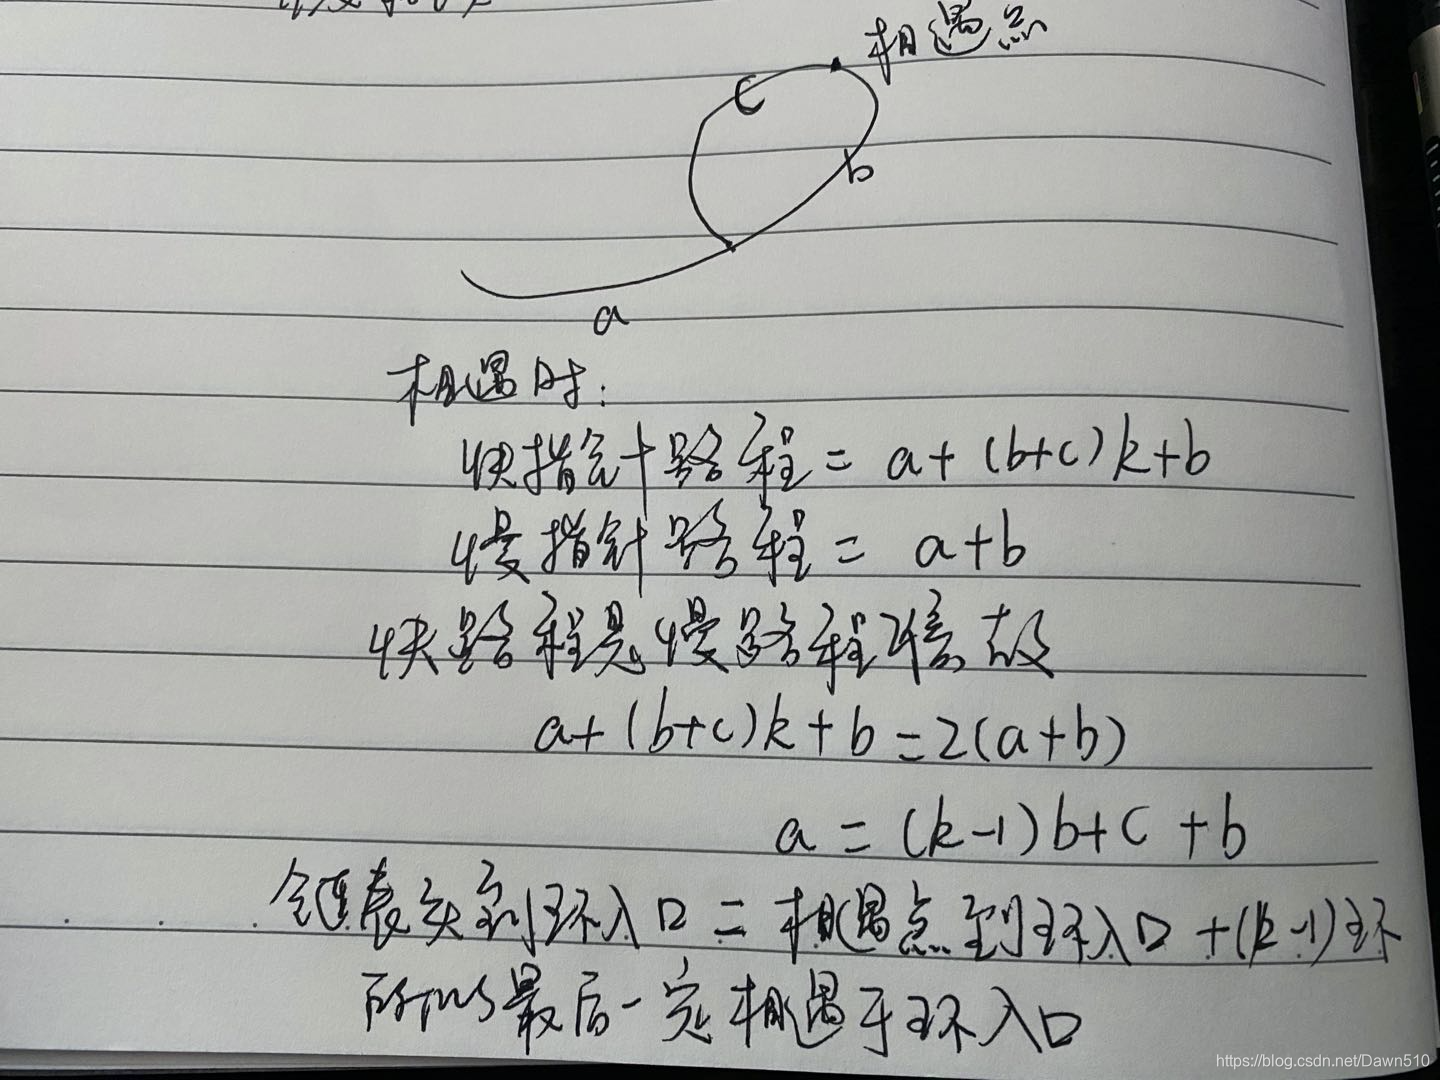 相遇点
c
b
a
相遇时:
快指针路程 = a+(b+c)k+b
慢指针路程 = a+b
快路程是慢路程2倍 故
a+(b+c)k+b=2(a+b)
a = (k-1)b+c+b
链表头到环入口 = 相遇点到环入口 +(k-1)环
所以最后一定相遇于环入口
https://blog.csdn.net/Dawn510